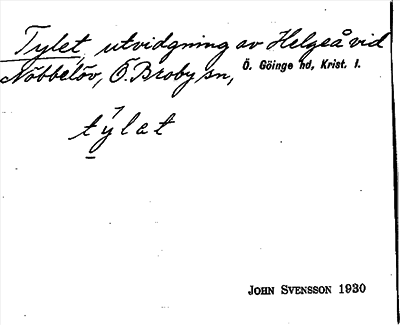 Tylet, utvidgning av Helgeå vid
Nöbbelöv, Ö. Broby sn, Ö. Göinge hd, Krist. l.
týlat
JOHN SVENSSON 1930